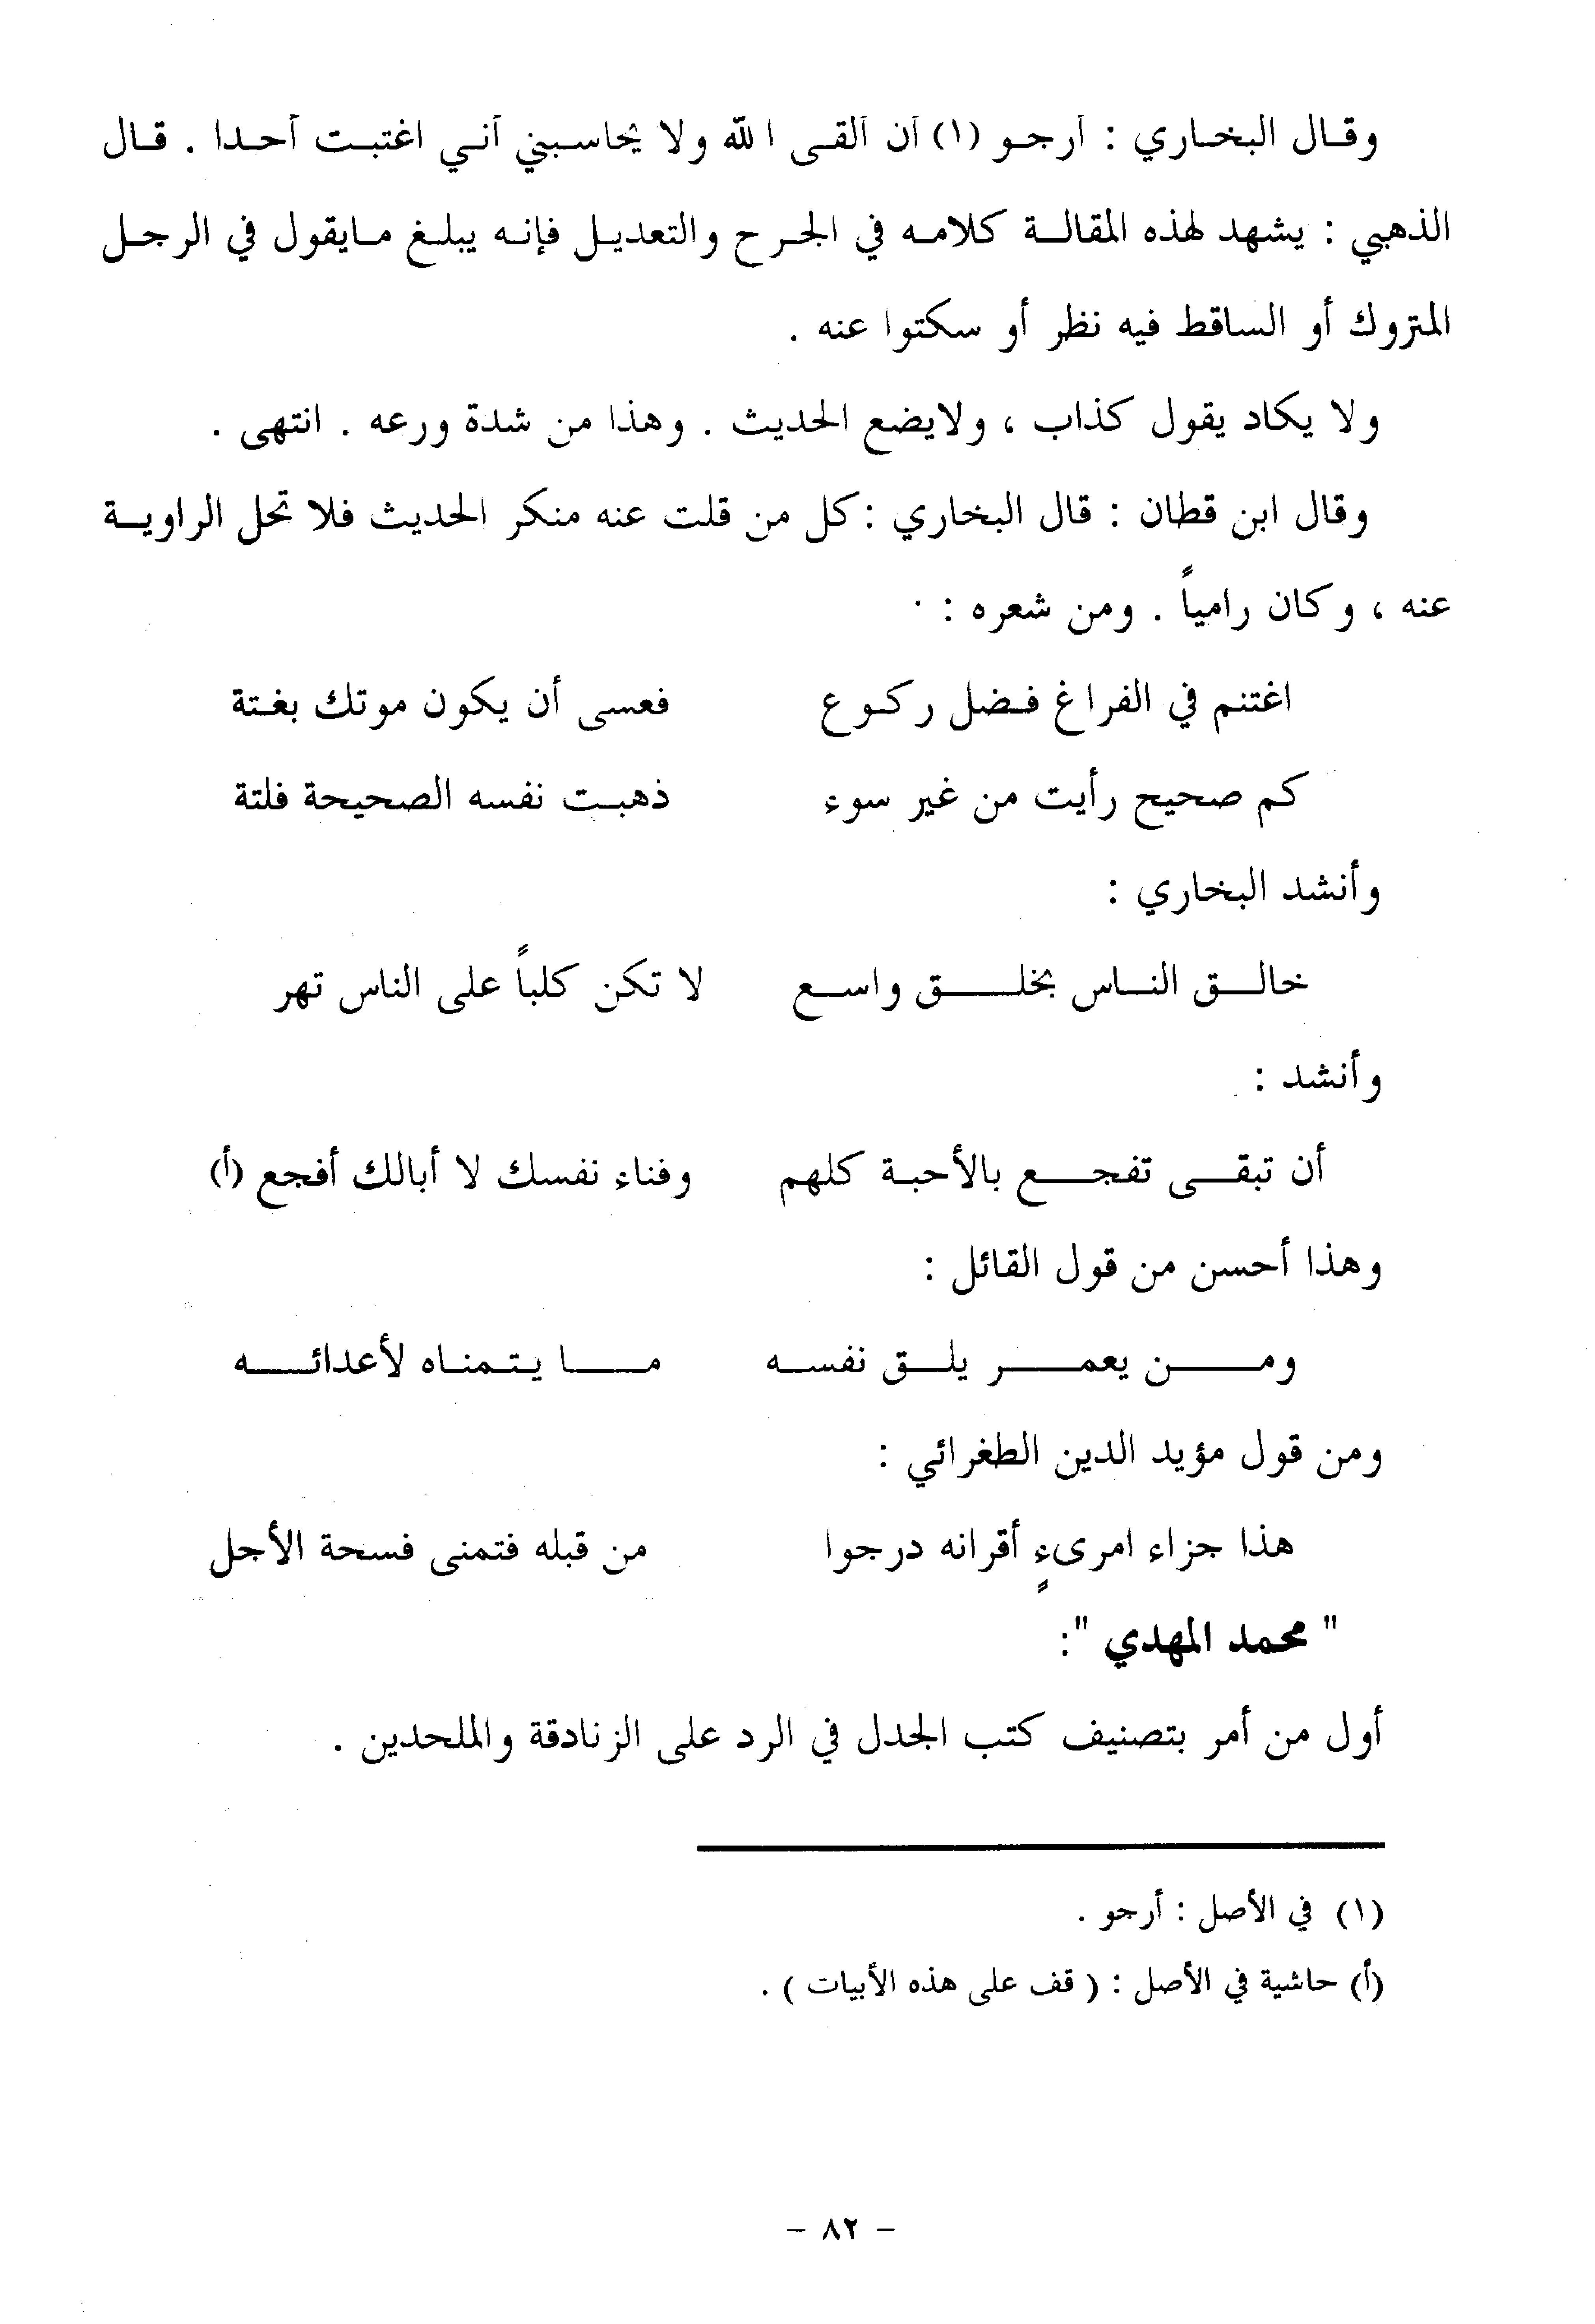 وقال البخاري : أرجو (١) أن ألقى الله ولا يحاسبني أني اغتبت أحدا . قال
الذهبي : يشهد لهذه المقالة كلامه في الجرح والتعديل فإنه يبلغ مايقول في الرجل
المتروك أو الساقط فيه نظر أو سكتوا عنه .
ولا يكاد يقول كذاب ، ولايضع الحديث . وهذا من شدة ورعه . انتهى .
وقال ابن قطان : قال البخاري : كل من قلت عنه منكر الحديث فلا تحل الراوية
عنه ، وكان رامياً . ومن شعره :
اغتنم في الفراغ فضل ركوع فعسى أن يكون موتك بغتة
كم صحيح رأيت من غير سوء ذهبت نفسه الصحيحة فلتة
وأنشد البخاري :
خالق الناس بخلق واسع لا تكن كلباً على الناس تهر
وأنشد :
أن تبقى تفجع بالأحبة كلهم وفناء نفسك لا أبالك أفجع (أ)
وهذا أحسن من قول القائل :
ومن يعمر يلق نفسه ما يتمناه لأعدائه
ومن قول مؤيد الدين الطغرائي :
هذا جزاء امرىءٍ أقرانه درجوا من قبله فتمنى فسحة الأجل
" محمد المهدي ":
أول من أمر بتصنيف كتب الجدل في الرد على الزنادقة والملحدين .
(١) في الأصل : أرجو .
(أ) حاشية في الأصل : ( قف على هذه الأبيات ) .
- ٨٢ -